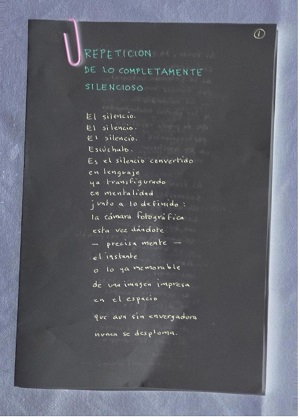 1
REPETICION
DE LO COMPLETAMENTE
SILENCIOSO
El silencio.
El silencio.
El silencio.
Escúchalo.
Es el silencio convertido
en lenguaje
ya transfigurado
en mentalidad
junto a lo definido:
la cámara fotográfica
esta vez dándote
— precisa mente —
el instante
o lo ya memorable
de una imagen impresa
en el espacio
que aún sin envergadura
nunca se desploma.